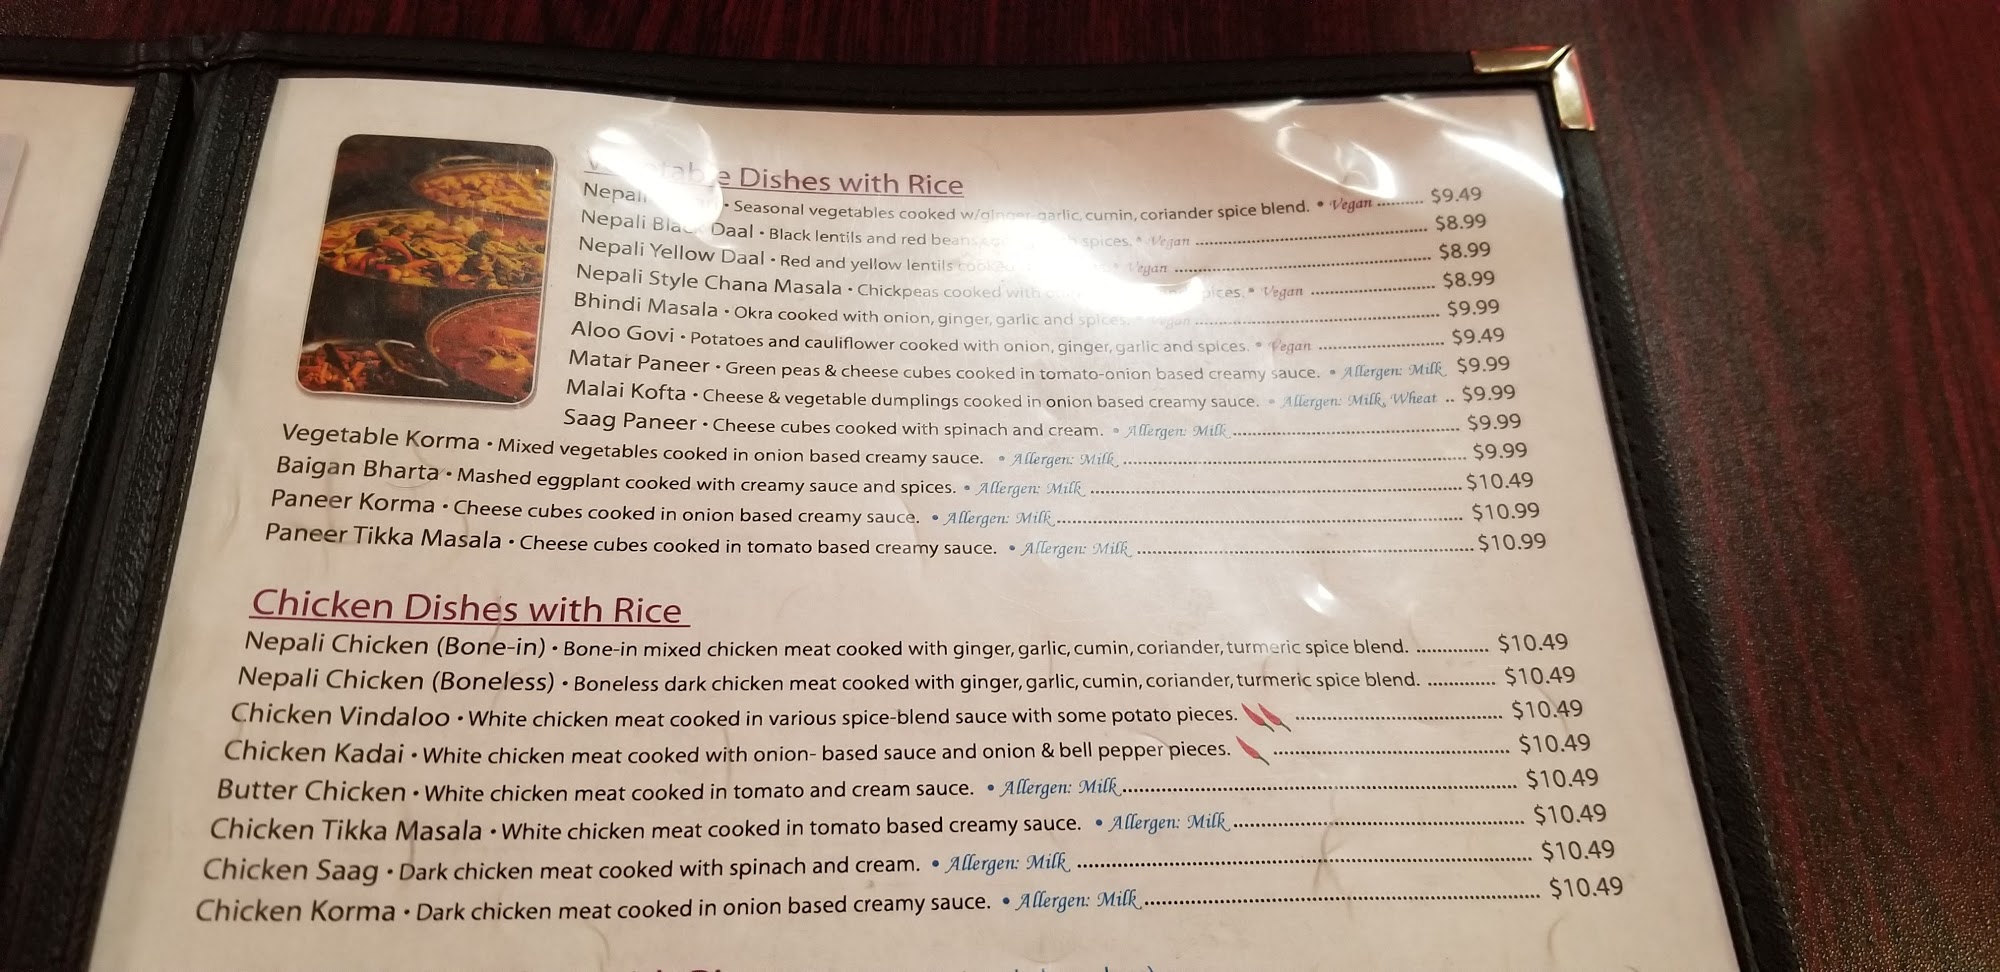 Dishes with Rice
Nepali • Seasonal vegetables cooked w/ginger, garlic, cumin, coriander spice blend. • Vegan .......... $9.49
Nepali Black Daal • Black lentils and red beans spices. • Vegan .......... $8.99
Nepali Yellow Daal • Red and yellow lentils cooked • Vegan .......... $8.99
Nepali Style Chana Masala • Chickpeas cooked with spices. • Vegan .......... $8.99
Bhindi Masala • Okra cooked with onion, ginger, garlic and spices. • Vegan .......... $9.99
Aloo Govi • Potatoes and cauliflower cooked with onion, ginger, garlic and spices. • Vegan .......... $9.49
Matar Paneer • Green peas & cheese cubes cooked in tomato-onion based creamy sauce. • Allergen: Milk $9.99
Malai Kofta • Cheese & vegetable dumplings cooked in onion based creamy sauce. • Allergen: Milk, Wheat .. $9.99
Saag Paneer • Cheese cubes cooked with spinach and cream. • Allergen: Milk .......... $9.99
Vegetable Korma • Mixed vegetables cooked in onion based creamy sauce. • Allergen: Milk .......... $9.99
Baigan Bharta • Mashed eggplant cooked with creamy sauce and spices. • Allergen: Milk .......... $10.49
Paneer Korma • Cheese cubes cooked in onion based creamy sauce. • Allergen: Milk .......... $10.99
Paneer Tikka Masala • Cheese cubes cooked in tomato based creamy sauce. • Allergen: Milk .......... $10.99
Chicken Dishes with Rice
Nepali Chicken (Bone-in) • Bone-in mixed chicken meat cooked with ginger, garlic, cumin, coriander, turmeric spice blend. .......... $10.49
Nepali Chicken (Boneless) • Boneless dark chicken meat cooked with ginger, garlic, cumin, coriander, turmeric spice blend. .......... $10.49
Chicken Vindaloo • White chicken meat cooked in various spice-blend sauce with some potato pieces. .......... $10.49
Chicken Kadai • White chicken meat cooked with onion- based sauce and onion & bell pepper pieces. .......... $10.49
Butter Chicken • White chicken meat cooked in tomato and cream sauce. • Allergen: Milk .......... $10.49
Chicken Tikka Masala • White chicken meat cooked in tomato based creamy sauce. • Allergen: Milk .......... $10.49
Chicken Saag • Dark chicken meat cooked with spinach and cream. • Allergen: Milk .......... $10.49
Chicken Korma • Dark chicken meat cooked in onion based creamy sauce. • Allergen: Milk .......... $10.49